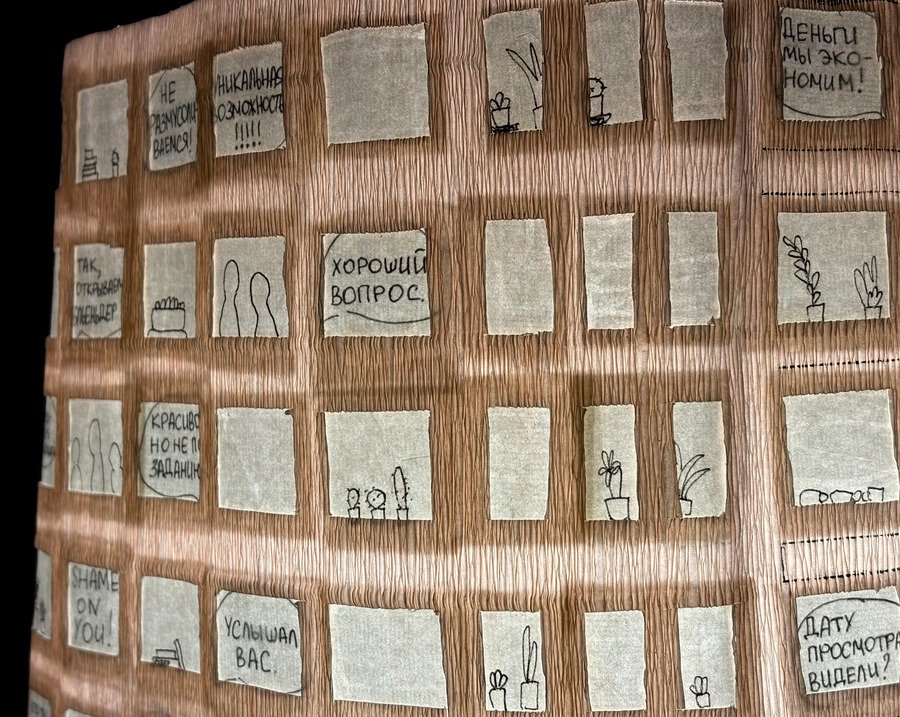 НЕ
РАЗМУСОЛИ
ВАЕМСЯ!
УНИКАЛЬНАЯ
ВОЗМОЖНОСТЬ
!!!!!
ДЕНЬГИ
МЫ ЭКО-
НОМИМ!
ТАК,
ОТКРЫВАЕМ
БЛЕНДЕР
ХОРОШИЙ
ВОПРОС.
КРАСИВО
НО НЕ ПО
ЗАДАНИЮ
SHAME
ON
YOU!
УСЛЫШАЛ
ВАС.
ДАТУ
ПРОСМОТРА
ВИДЕЛИ?